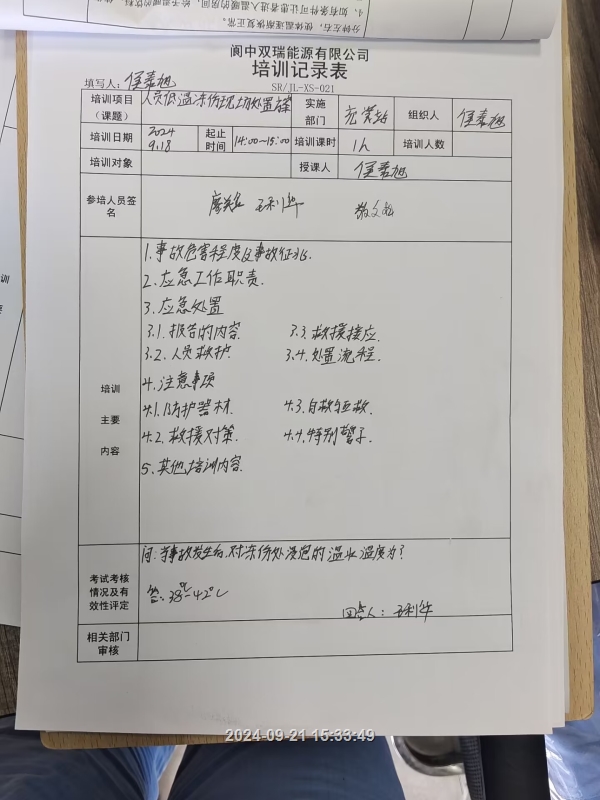 分钟左右，使体温逐渐恢复正常。
4、如有条件可让患者进入温暖的房间，给予温暖的饮料
阆中双瑞能源有限公司
培训记录表
填写人：
SR/JL-XS-021
培训项目（课题） 人员低温冻伤现场处置方案 实施部门 组织人
培训日期 2024 9.18 起止时间 14:00~15:00 培训课时 1h 培训人数
培训对象 授课人
参培人员签名 王利华
培训主要内容
1.事故危害程度及事故征兆.
2.应急工作职责.
3.应急处置
3.1.报告的内容. 3.3.救援接应.
3.2.人员救护. 3.4.处置流程.
4.注意事项
4.1.防护器材. 4.3.自救与互救.
4.2.救援对策. 4.4.特别警示.
5.其他培训内容.
考试考核情况及有效性评定
问:当事故发生后,对冻伤处浸泡的温水温度为?
答:38℃-42℃
回答人:王利华
相关部门审核
训
2024-09-21 15:33:49